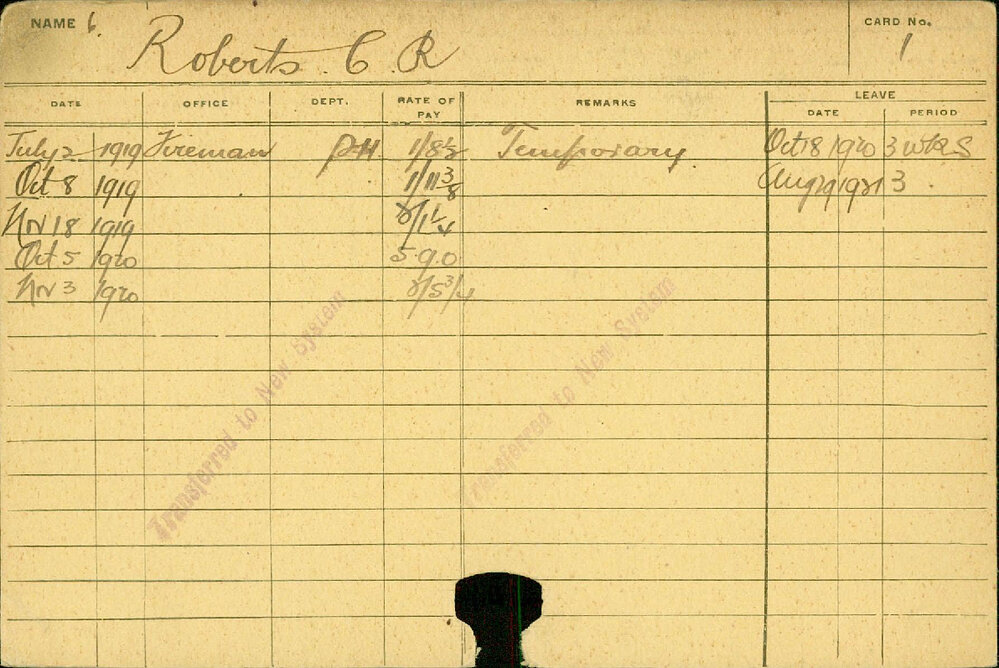 NAME 6. Roberts C R CARD No. 1
DATE OFFICE DEPT. RATE OF PAY REMARKS LEAVE
DATE PERIOD
July 2 1919 Fireman P.H. 1/8½ Temporary Oct 18 1920 3 wks
Oct 8 1919 1/11 3/8 Aug 29 1921 3
Nov 18 1919 2/1 ¼
Oct 5 1920 5.9.0
Nov 3 1920 2/5 3/4
Transferred to New System
Transferred to New System